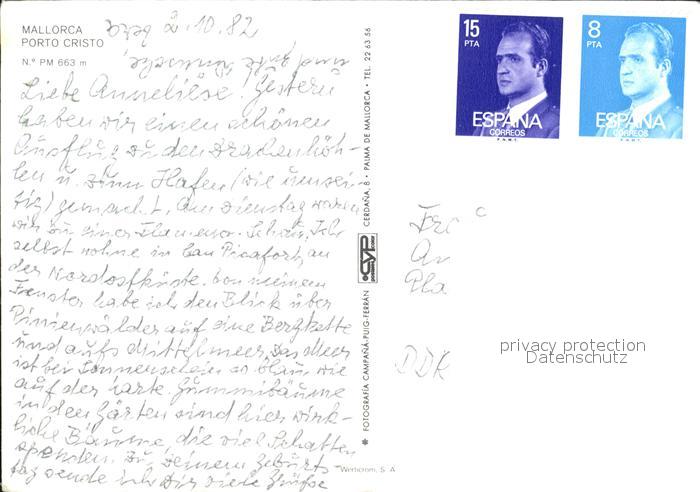 MALLORCA
PORTO CRISTO
N.º PM 663 m
2.10.82
Liebe Anneliese! Gestern
haben wir einen schönen
Ausflug zu den Drachenhöh-
len u. zum Hafen (wie umsei-
tig) gemacht. Am Dienstag waren
wir zu einer Flamenco-Schau. Ich
selbst wohne in Can Picafort, an
der Nordostküste. Von meinem
Fenster habe ich den Blick über
Pinienwälder auf eine Bergkette
und aufs Mittelmeer. Das Meer
ist bei Sonnenschein so blau wie
auf der Karte. Gummibäume
in den Gärten sind hier wirk-
liche Bäume, die viel Schatten
spenden. Zu Deinem Geburts-
tag sende ich Dir viele Grüße
FOTOGRAFIA CAMPAÑÁ-PUIG-FERRÁN CERDAÑA, 8 • PALMA DE MALLORCA • TEL. 22 63 56
CYP
Werticrom, S. A
15
PTA
ESPAÑA
CORREOS
8
PTA
ESPAÑA
CORREOS
An
Pla
DDR
privacy protection
Datenschutz